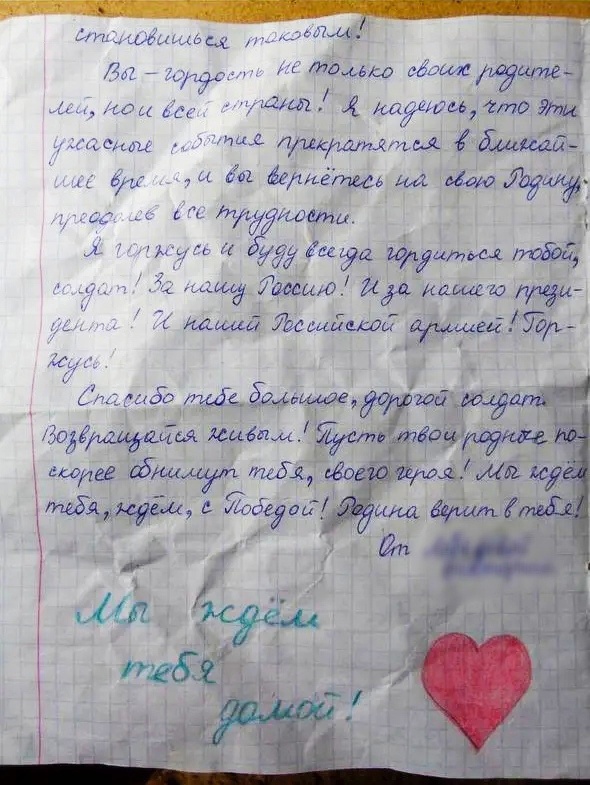 становишься таковым!
Вы - гордость не только своих родите-
лей, но и всей страны! Я надеюсь, что эти
ужасные события прекратятся в ближай-
шее время, и вы вернётесь на свою Родину,
преодолев все трудности.
Я горжусь и буду всегда гордиться тобой,
солдат! За нашу Россию! И за нашего прези-
дента! И нашей Российской армией! Гор-
жусь!
Спасибо тебе большое, дорогой солдат.
Возвращайся живым! Пусть твои родные по-
скорее обнимут тебя, своего героя! Мы ждём
тебя, ждём, с Победой! Родина верит в тебя!
От
Мы ждём
тебя
домой!